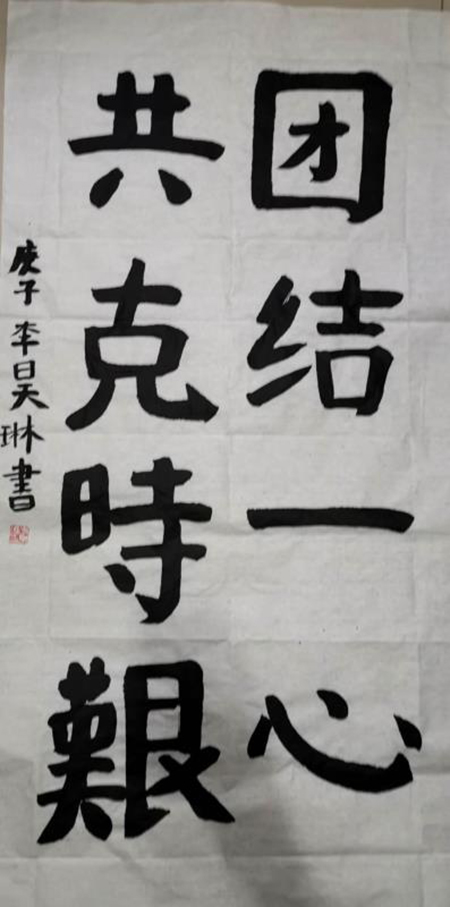 团结一心
共克時艱
庚子李昊琳書